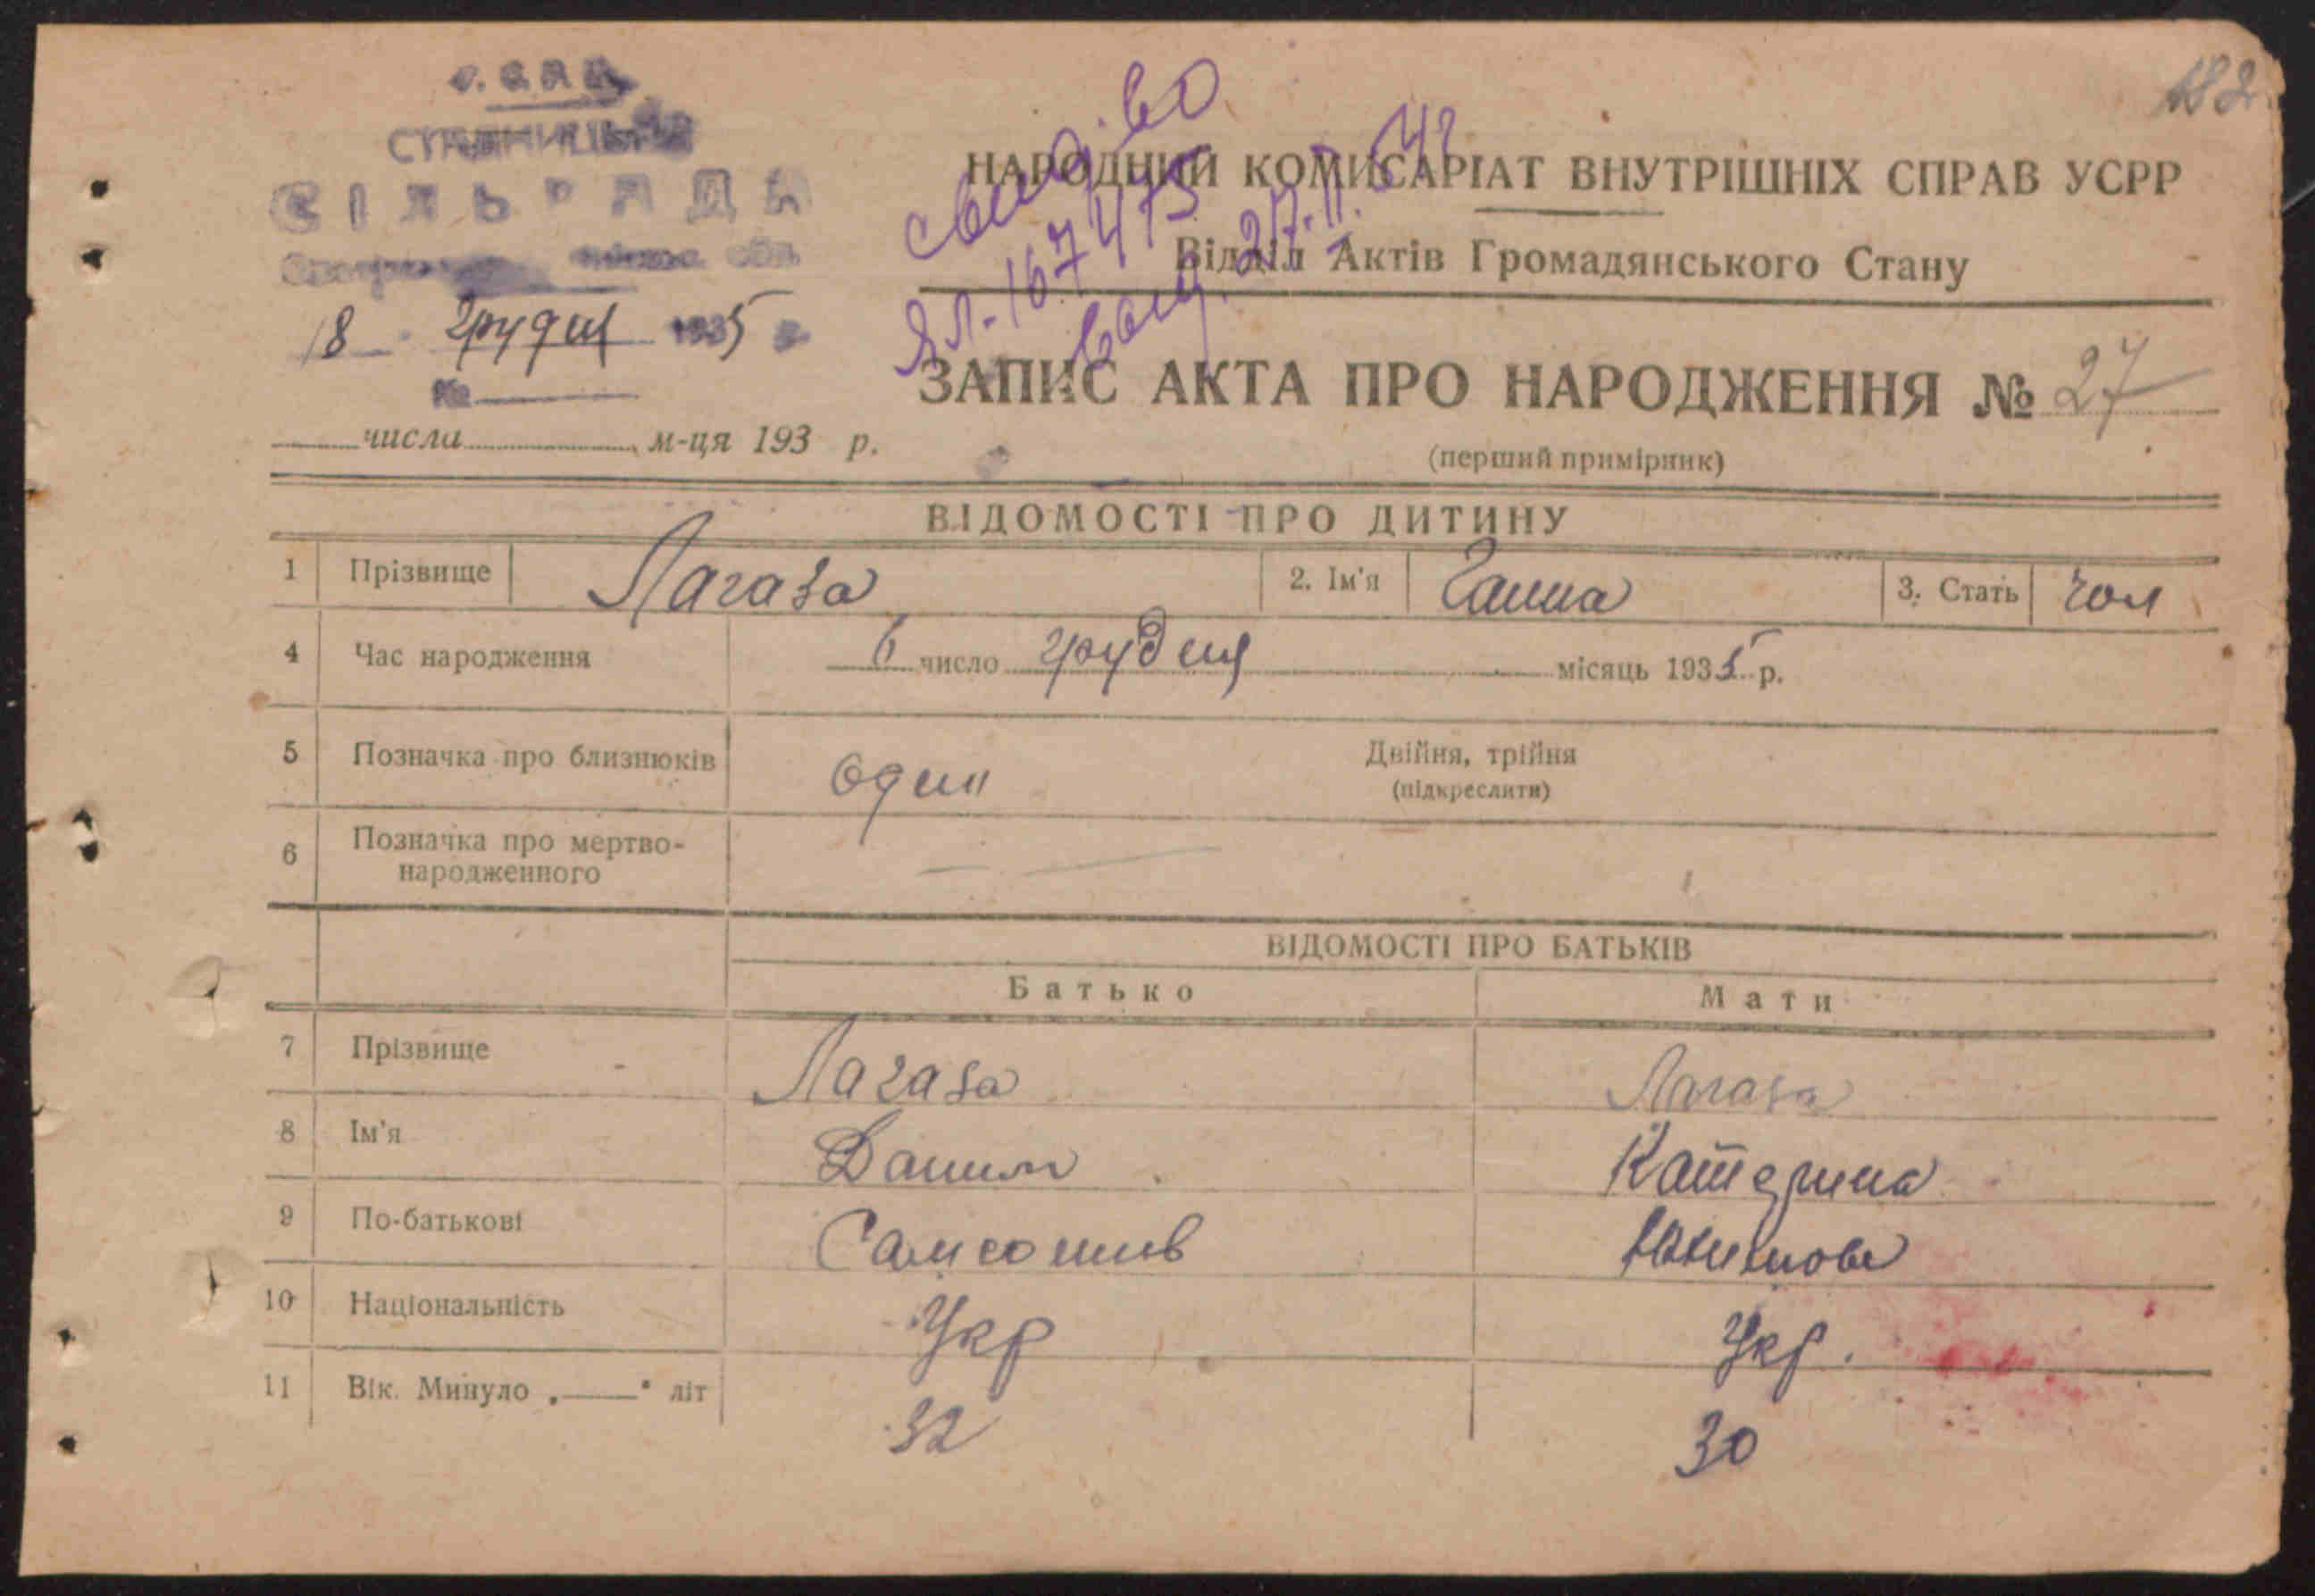 182
свид-во
ЯЛ-167475
27.II.54г
НАРОДНИЙ КОМИСАРІАТ ВНУТРІШНІХ СПРАВ УСРР
Відділ Актів Громадянського Стану
СІЛЬРАДА
18 грудня 1935
№
числа м-ця 193 р.
ЗАПИС АКТА ПРО НАРОДЖЕННЯ № 27
(перший примірник)
ВІДОМОСТІ ПРО ДИТИНУ
1 Прізвище Лагаза 2. Ім'я Ганна 3. Стать чол
4 Час народження 6 число грудня місяць 1935 р.
5 Позначка про близнюків один Двійня, трійня
(підкреслити)
6 Позначка про мертво-
народженного —
ВІДОМОСТІ ПРО БАТЬКІВ
Батько Мати
7 Прізвище Лагаза Лагаза
8 Ім'я Данило Катерина
9 По-батькові Самсонів
10 Національність Укр Укр.
11 Вік. Минуло „——" літ 32 30